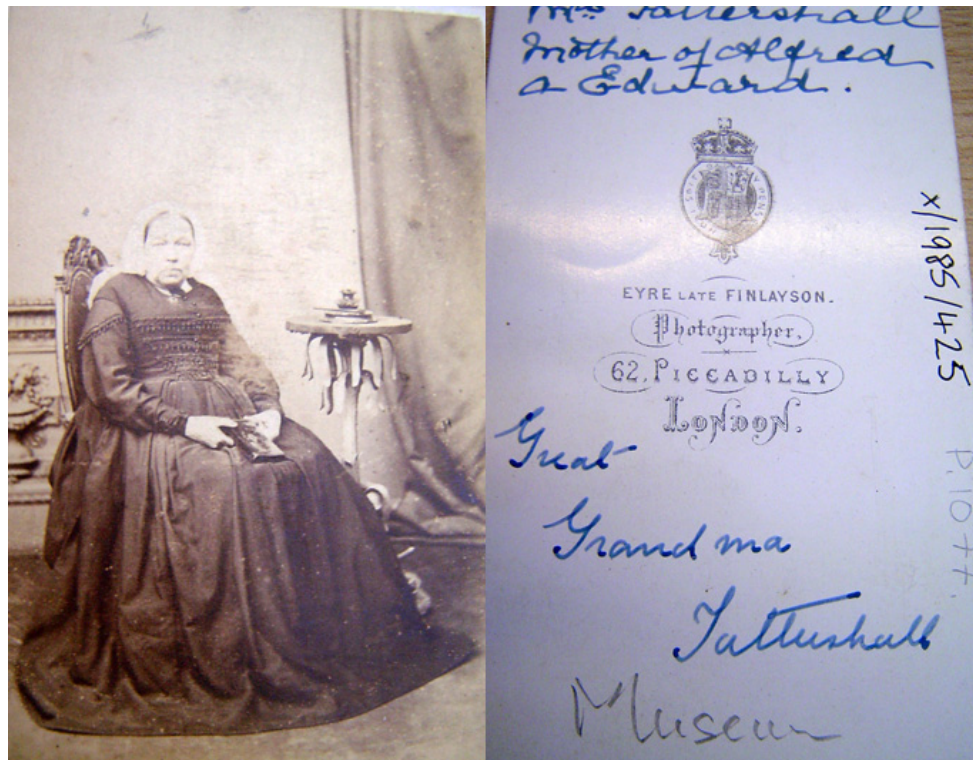 Mrs Tattershall
mother of Alfred
& Edward.
EYRE LATE FINLAYSON.
Photographer,
62, PICCADILLY
LONDON.
x/1985/425
Great
Grandma
Tattershall
Museum